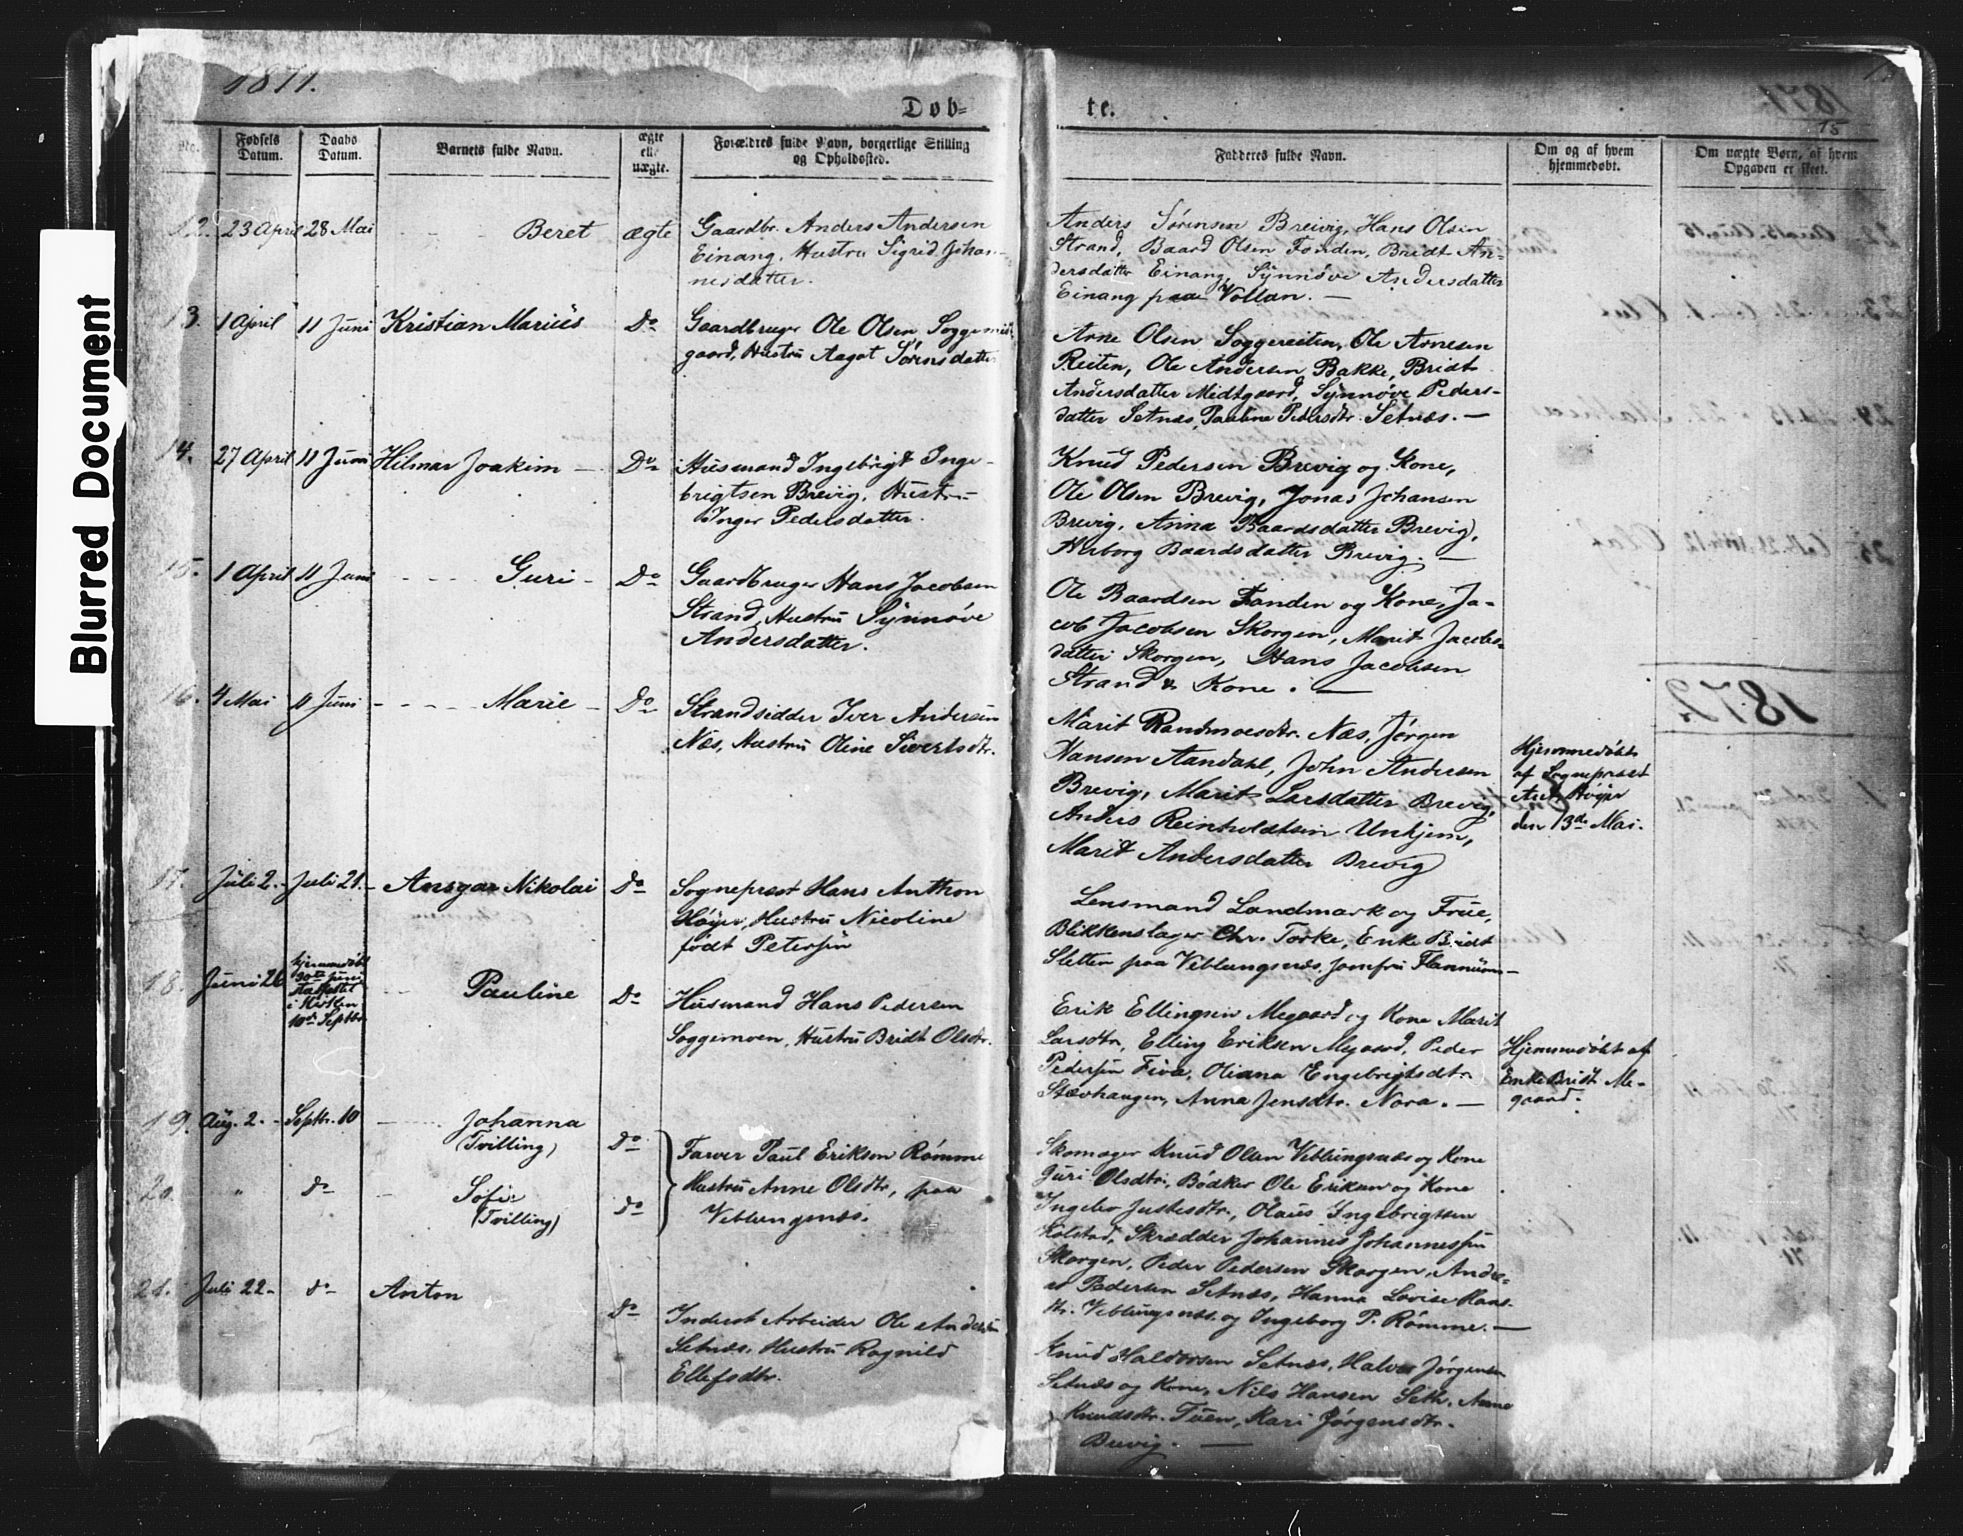 Blurred Document
1871.
Døb-
te.
1871
15
No.
Fødsels Datum.
Daabs Datum.
Barnets fulde Navn.
ægte ell. uægte.
Forældres fulde Navn, borgerlige Stilling og Opholdssted.
Fadderes fulde Navn.
Om og af hvem hjemmedøbt.
Om uægte Børn, af hvem Opgaven er skeet.
12. 23 April 28 Mai Beret ægte
Gaardbr. Anders Andersen
Einang, Hustru Sigrid Johan-
nesdatter.
Anders Sørensen Breivig, Hans Olsen
Strand, Baard Olsen Fonden, Bridt An-
dersdatter Einang, Synnøve Andersdatter
Einang paa Vollan. —
13. 1 April 11 Juni Kristian Mariüs Do
Gaardbruger Ole Olsen Soggemidt-
gaard, Hustru Aagot Sørensdatter
Arne Olsen Soggereiten, Ole Arnesen
Reiten, Ole Andersen Bakke, Bridt
Andersdatter Midtgaard, Synnøve Peders-
datter Setnæs, Pauline Pedersdtr. Setnæs. —
14. 27 April 11 Juni Hilmar Joakim — Do
Husmand Ingebrigt Inge-
brigtsen Brevig, Hustru
Inger Pedersdatter.
Knud Pedersen Brevig og Kone,
Ole Olsen Brevig, Jonas Johansen
Brevig, Anna Baardsdatter Brevig,
Herborg Baardsdatter Brevig. —
15. 1 April 11 Juni Guri — Do
Gaardbruger Hans Jacobsen
Strand, Hustru Synnøve
Andersdatter.
Ole Baardsen Fonden og Kone, Ja-
cob Jacobsen Skorgen, Marit Jacobs-
datter Skorgen, Hans Jacobsen
Strand & Kone. —
16. 4 Mai 11 Juni Marie — Do
Strandsidder Iver Andersen
Næs, Hustru Oline Sivertsdtr.
Marit Randmoesdtr. Næs, Jørgen
Hansen Aandahl, John Andersen
Brevig, Marit Larsdatter Brevig,
Anders Reinholdtsen Unhjem,
Marit Andersdatter Brevig
Hjemmedøbt
af Sogneprest
Ant. Høyer
den 13de Mai.
1872.
17. Juli 2. — Juli 21. — Ansgar Nikolai Do
Sogneprest Hans Anthon
Høyer, Hustru Nicoline
født Petersen
Lensmand Landmark og Frue,
Blikkenslager Chr. Torke, Enke Bridt
Sletten paa Veblungsnæs, Jomfru
18. Juni 26 hjemmedøbt
30te Juni
stadfæstet
i Kirken
10de Septbr
Pauline Do
Husmand Hans Pedersen
Soggemoen, Hustru Bridt Olsdtr.
Erik Ellingsen Megaard og Kone Marit
Larsdtr, Elling Eriksen Megaard, Peder
Pedersen Fiva, Oliana Engebrigtsdtr
Stavhaugen, Anna Jensdtr. Nora. —
Hjemmedøbt af
Enke Bridt Me-
gaard.
19. Aug. 2. — Septbr. 10 Johanna Do
(Tvilling)
20. " do — Sofie Do
(Tvilling)
Farver Paul Eriksen Rømme
Hustru Anne Olsdtr, paa
Veblungsnæs.
Skomager Knud Olsen Veblungsnæs og Kone
Guri Olsdtr, Bødker Ole Eriksen og Kone
Ingebor Justesdtr, Olaus Ingebrigtsen
Kolstad, Skrædder Johannes Johannessen
Skorgen, Peder Pedersen Skorgen, Andre-
as Pedersen Setnæs, Hanna Lovise Hans-
dtr. Veblungsnæs og Ingeborg P. Rømme. —
21. Juli 22. — do Anton Do
Inderst Arbeider Ole Andersen
Setnæs, Hustru Ragnild
Ellefsdtr.
Knud Haldorsen Setnæs, Halvor Jørgensen
Setnæs og Kone, Nils Hansen Seth, Anne
Knudsdtr. Tuen, Kari Jørgensdtr.
Brevig. —